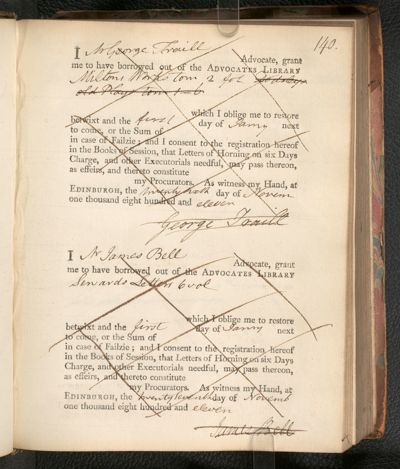 140.
I Mr George Traill Advocate, grant
me to have borrowed out of the ADVOCATES LIBRARY
Miltons Works tom. 2 fol
old Plays tom 1-6
which I oblige me to restore
betwixt and the first day of Janry next
to come, or the Sum of
in case of Failzie; and I consent to the registration hereof
in the Books of Session, that Letters of Horning on six Days
Charge, and other Executorials needful, may pass thereon,
as effeirs, and thereto constitute
my Procurators. As witness my Hand, at
EDINBURGH, the day of Novem
one thousand eight hundred and eleven
George Traill
I Mr James Bell Advocate, grant
me to have borrowed out of the ADVOCATES LIBRARY
Sewards Letters 6 vol
which I oblige me to restore
betwixt and the first day of Janry next
to come, or the Sum of
in case of Failzie; and I consent to the registration hereof
in the Books of Session, that Letters of Horning on six Days
Charge, and other Executorials needful, may pass thereon,
as effeirs, and thereto constitute
my Procurators. As witness my Hand, at
EDINBURGH, the twentyseventh day of Novemb
one thousand eight hundred and eleven
James Bell